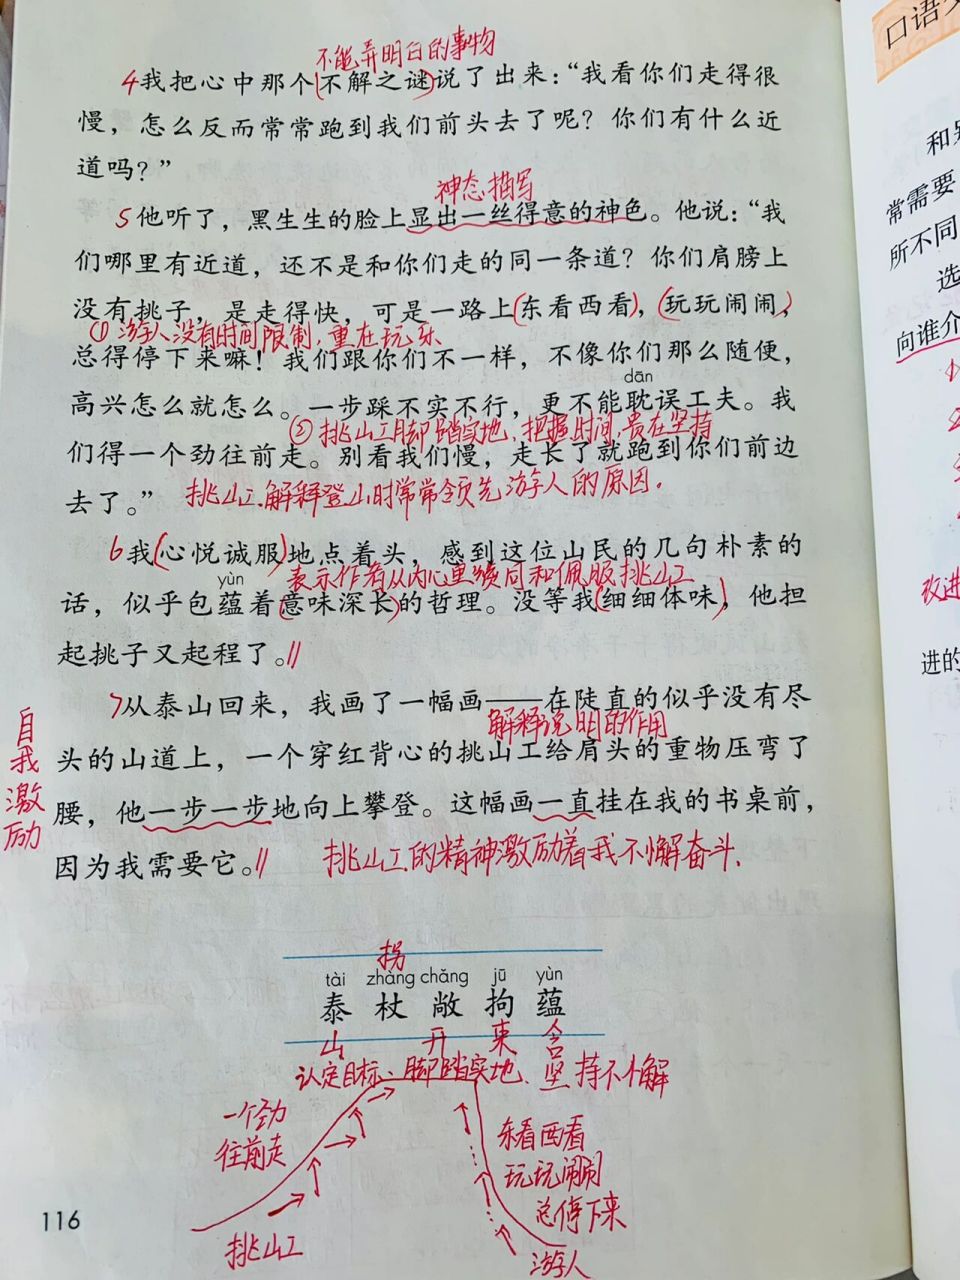 不能弄明白的事物
4我把心中那个(不解之谜)说了出来：“我看你们走得很
慢，怎么反而常常跑到我们前头去了呢？你们有什么近
道吗？”
神态描写
5他听了，黑生生的脸上显出一丝得意的神色。他说：“我
们哪里有近道，还不是和你们走的同一条道？你们肩膀上
没有挑子，是走得快，可是一路上(东看西看)，(玩玩闹闹)，
①游人没有时间限制，重在玩乐
总得停下来嘛！我们跟你们不一样，不像你们那么随便，
dān
高兴怎么就怎么。一步踩不实不行，更不能耽误工夫。我
②挑山工脚踏实地、把握时间，贵在坚持
们得一个劲往前走。别看我们慢，走长了就跑到你们前边
去了。”
挑山工解释登山时常常领先游人的原因。
6我(心悦诚服)地点着头，感到这位山民的几句朴素的
表示作者从内心里赞同和佩服挑山工
yùn
话，似乎包蕴着(意味深长)的哲理。没等我(细细体味)，他担
起挑子又起程了。//
7从泰山回来，我画了一幅画——在陡直的似乎没有尽
解释说明的作用
头的山道上，一个穿红背心的挑山工给肩头的重物压弯了
腰，他一步一步地向上攀登。这幅画一直挂在我的书桌前，
因为我需要它。//
挑山工的精神激励着我不懈奋斗.
自我激励
拐
tài zhàng chǎng jū yùn
泰 杖 敞 拘 蕴
山 开 束 含
认定目标、脚踏实地、坚持不懈
一个劲
往前走
挑山工
东看西看
玩玩闹闹
总停下来
游人
116
口语
和别
常需要
所不同
选
向谁介
改进
进的